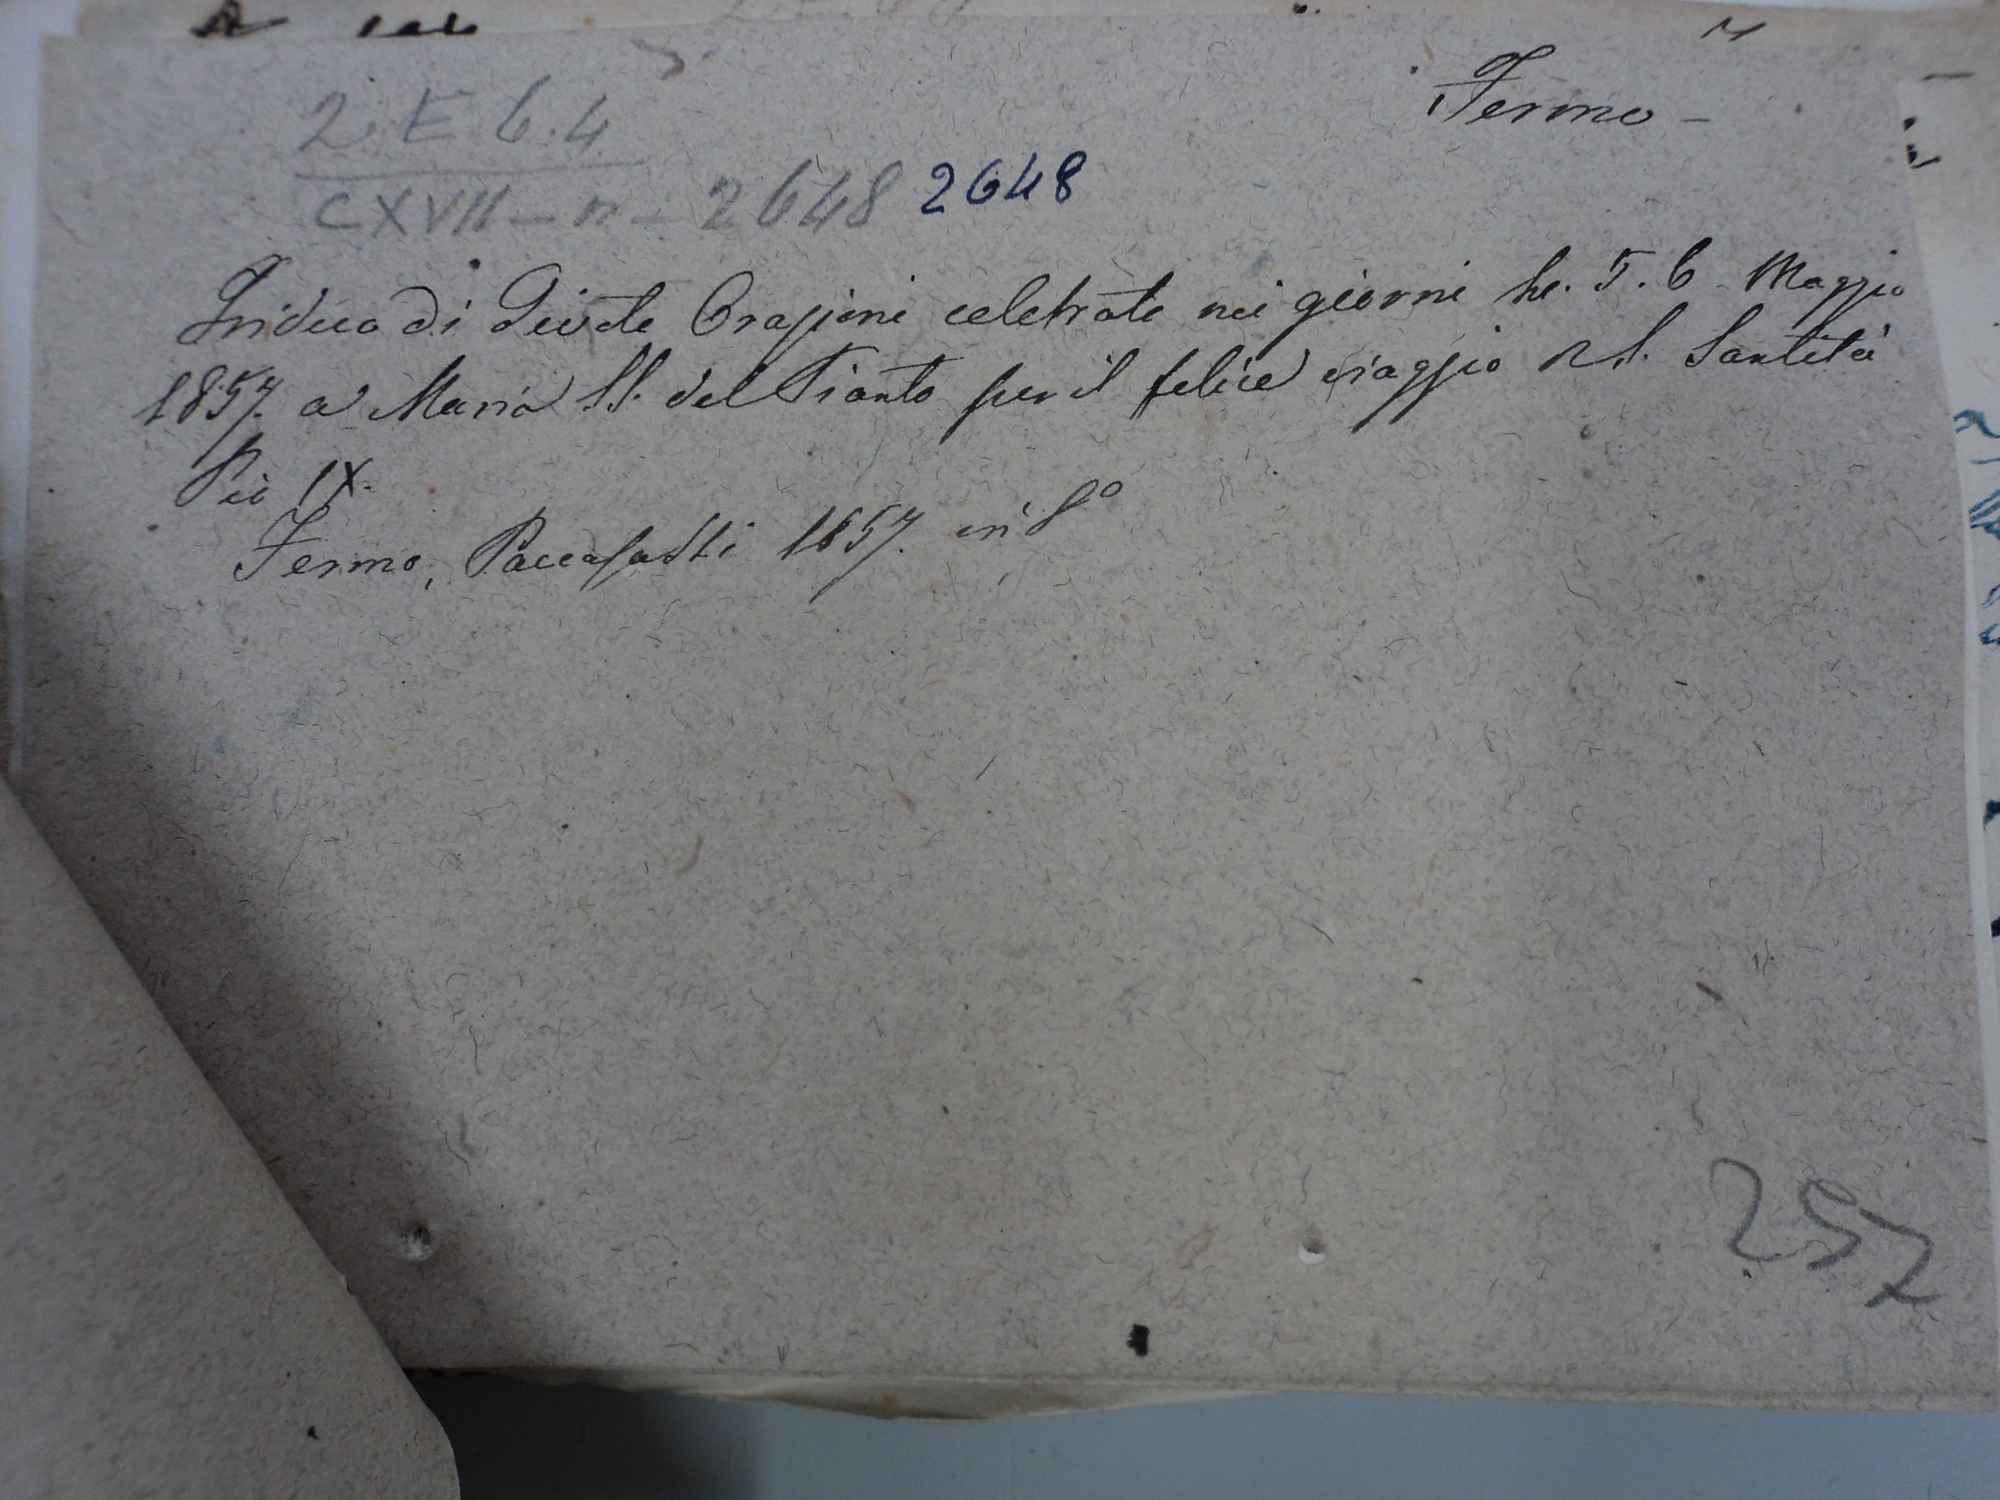 Fermo -
2 E 6.4
CXVII - n - 2648 2648
Triduo di Divote Orazioni celebrate nei giorni 4. 5. 6 Maggio
1857. a Maria SS. del Pianto per il felice viaggio di S. Santità
Pio IX.
Fermo, Paccasassi 1857. in 8°
257